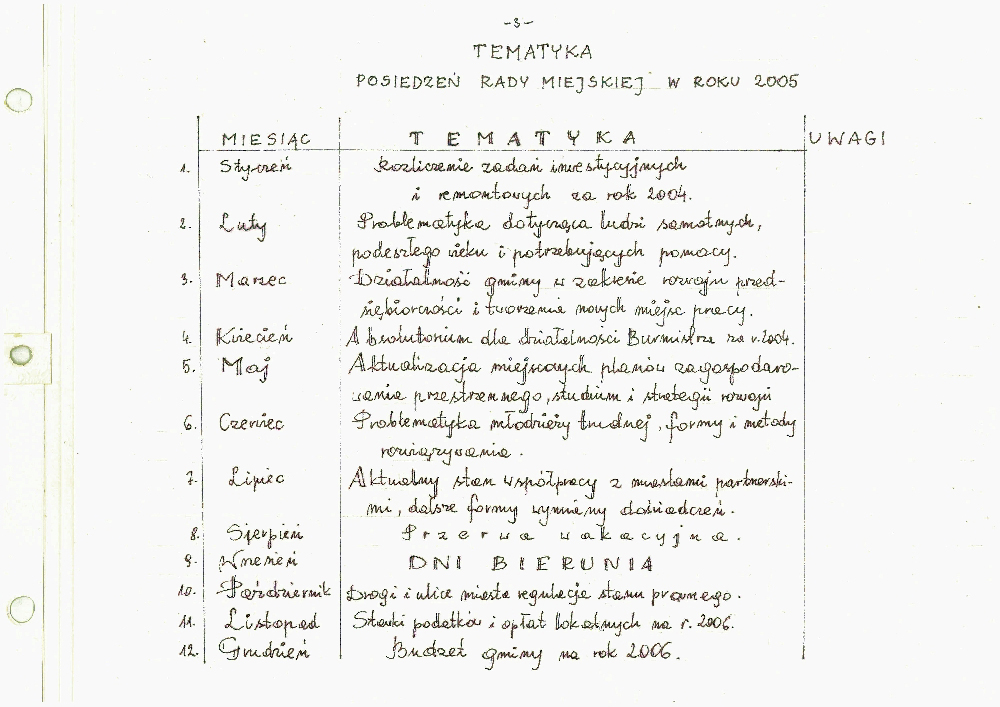 -3-
TEMATYKA
POSIEDZEŃ RADY MIEJSKIEJ W ROKU 2005
MIESIĄC TEMATYKA UWAGI
1. Styczeń Rozliczenie zadań inwestycyjnych
i remontowych za rok 2004.
2. Luty Problematyka dotycząca ludzi samotnych,
podeszłego wieku i potrzebujących pomocy.
3. Marzec Działalność gminy w zakresie rozwoju przed-
siębiorczości i tworzenia nowych miejsc pracy.
4. Kwiecień Absolutorium dla działalności Burmistrza za r. 2004.
5. Maj Aktualizacja miejscowych planów zagospodaro-
wania przestrzennego, studium i strategii rozwoju
6. Czerwiec Problematyka młodzieży trudnej, formy i metody
rozwiązywania.
7. Lipiec Aktualny stan współpracy z miastami partnerski-
mi, dalsze formy wymiany doświadczeń.
8. Sierpień Przerwa wakacyjna.
9. Wrzesień DNI BIERUNIA
10. Październik Drogi i ulice miasta regulacja stanu prawnego.
11. Listopad Stawki podatków i opłat lokalnych na r. 2006.
12. Grudzień Budżet gminy na rok 2006.